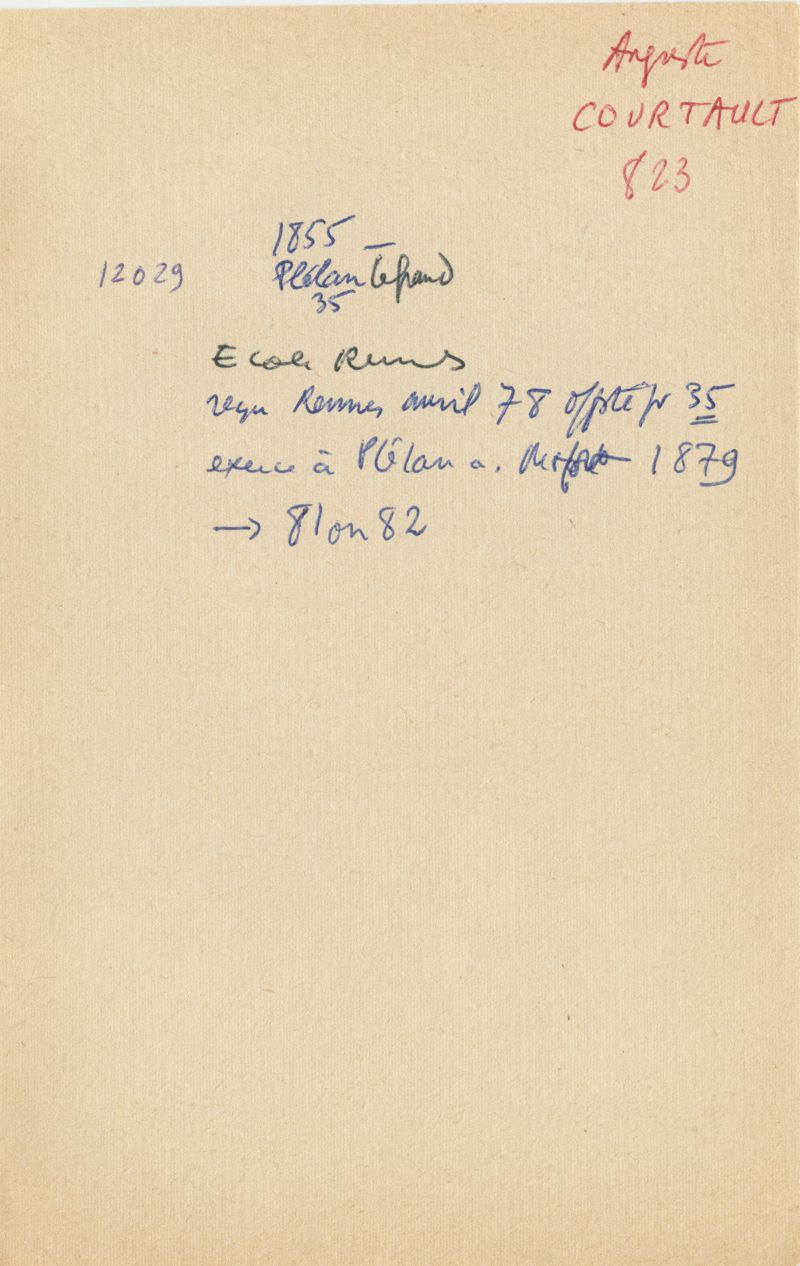 Auguste
COURTAULT
823
1855 –
12029 Plélan le grand
35
Ecole Rennes
reçu Rennes avril 78 off pté pr 35
exerce à Plélan a. Montfort 1879
→ 81 ou 82